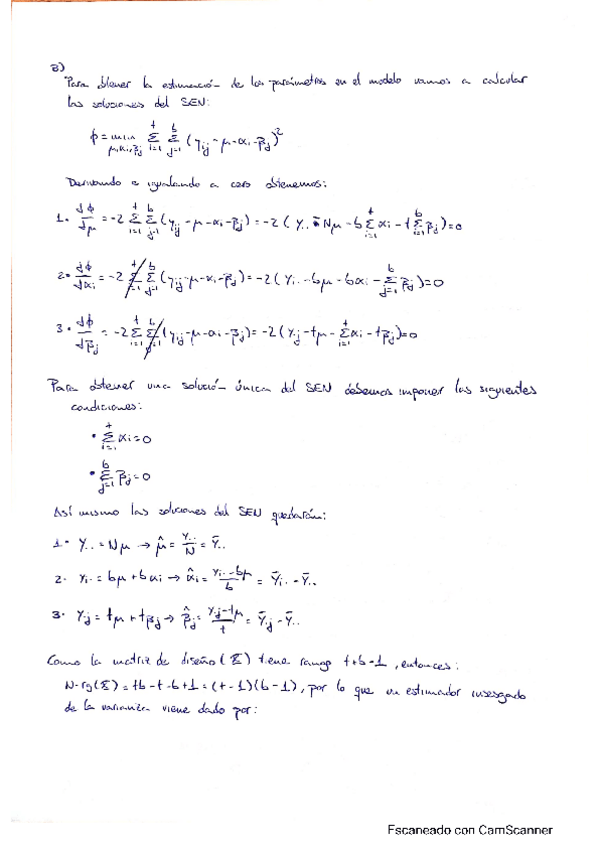 3)
Para obtener la estimación de los parámetros en el modelo vamos a calcular
las soluciones del SEN:
ϕ = min_{μ,αi,βj} Σ_{i=1}^{t} Σ_{j=1}^{b} (y_{ij} - μ - α_i - β_j)^2
Derivando e igualando a cero obtenemos:
1. dϕ/dμ = -2 Σ_{i=1}^{t} Σ_{j=1}^{b} (y_{ij} - μ - α_i - β_j) = -2 (y.. - Nμ - b Σ_{i=1}^{t} α_i - t Σ_{j=1}^{b} β_j) = 0
2. dϕ/dα_i = -2 Σ_{i=1}^{t} Σ_{j=1}^{b} (y_{ij} - μ - α_i - β_j) = -2 (y_i. - bμ - bα_i - Σ_{j=1}^{b} β_j) = 0
3. dϕ/dβ_j = -2 Σ_{i=1}^{t} Σ_{j=1}^{b} (y_{ij} - μ - α_i - β_j) = -2 (y._j - tμ - Σ_{i=1}^{t} α_i - tβ_j) = 0
Para obtener una solución única del SEN debemos imponer las siguientes
condiciones:
• Σ_{i=1}^{t} α_i = 0
• Σ_{j=1}^{b} β_j = 0
Así mismo las soluciones del SEN quedarán:
1. y.. = Nμ → μ̂ = y../N = ȳ..
2. y_i. = bμ + bα_i → α̂_i = (y_i. - bμ)/b = ȳ_i. - ȳ..
3. y._j = tμ + tβ_j → β̂_j = (y._j - tμ)/t = ȳ._j - ȳ..
Como la matriz de diseño (X) tiene rango t+b-1, entonces:
N-rg(X) = tb-t-b+1 = (t-1)(b-1), por lo que un estimador insesgado
de la varianza viene dado por:
Escaneado con CamScanner